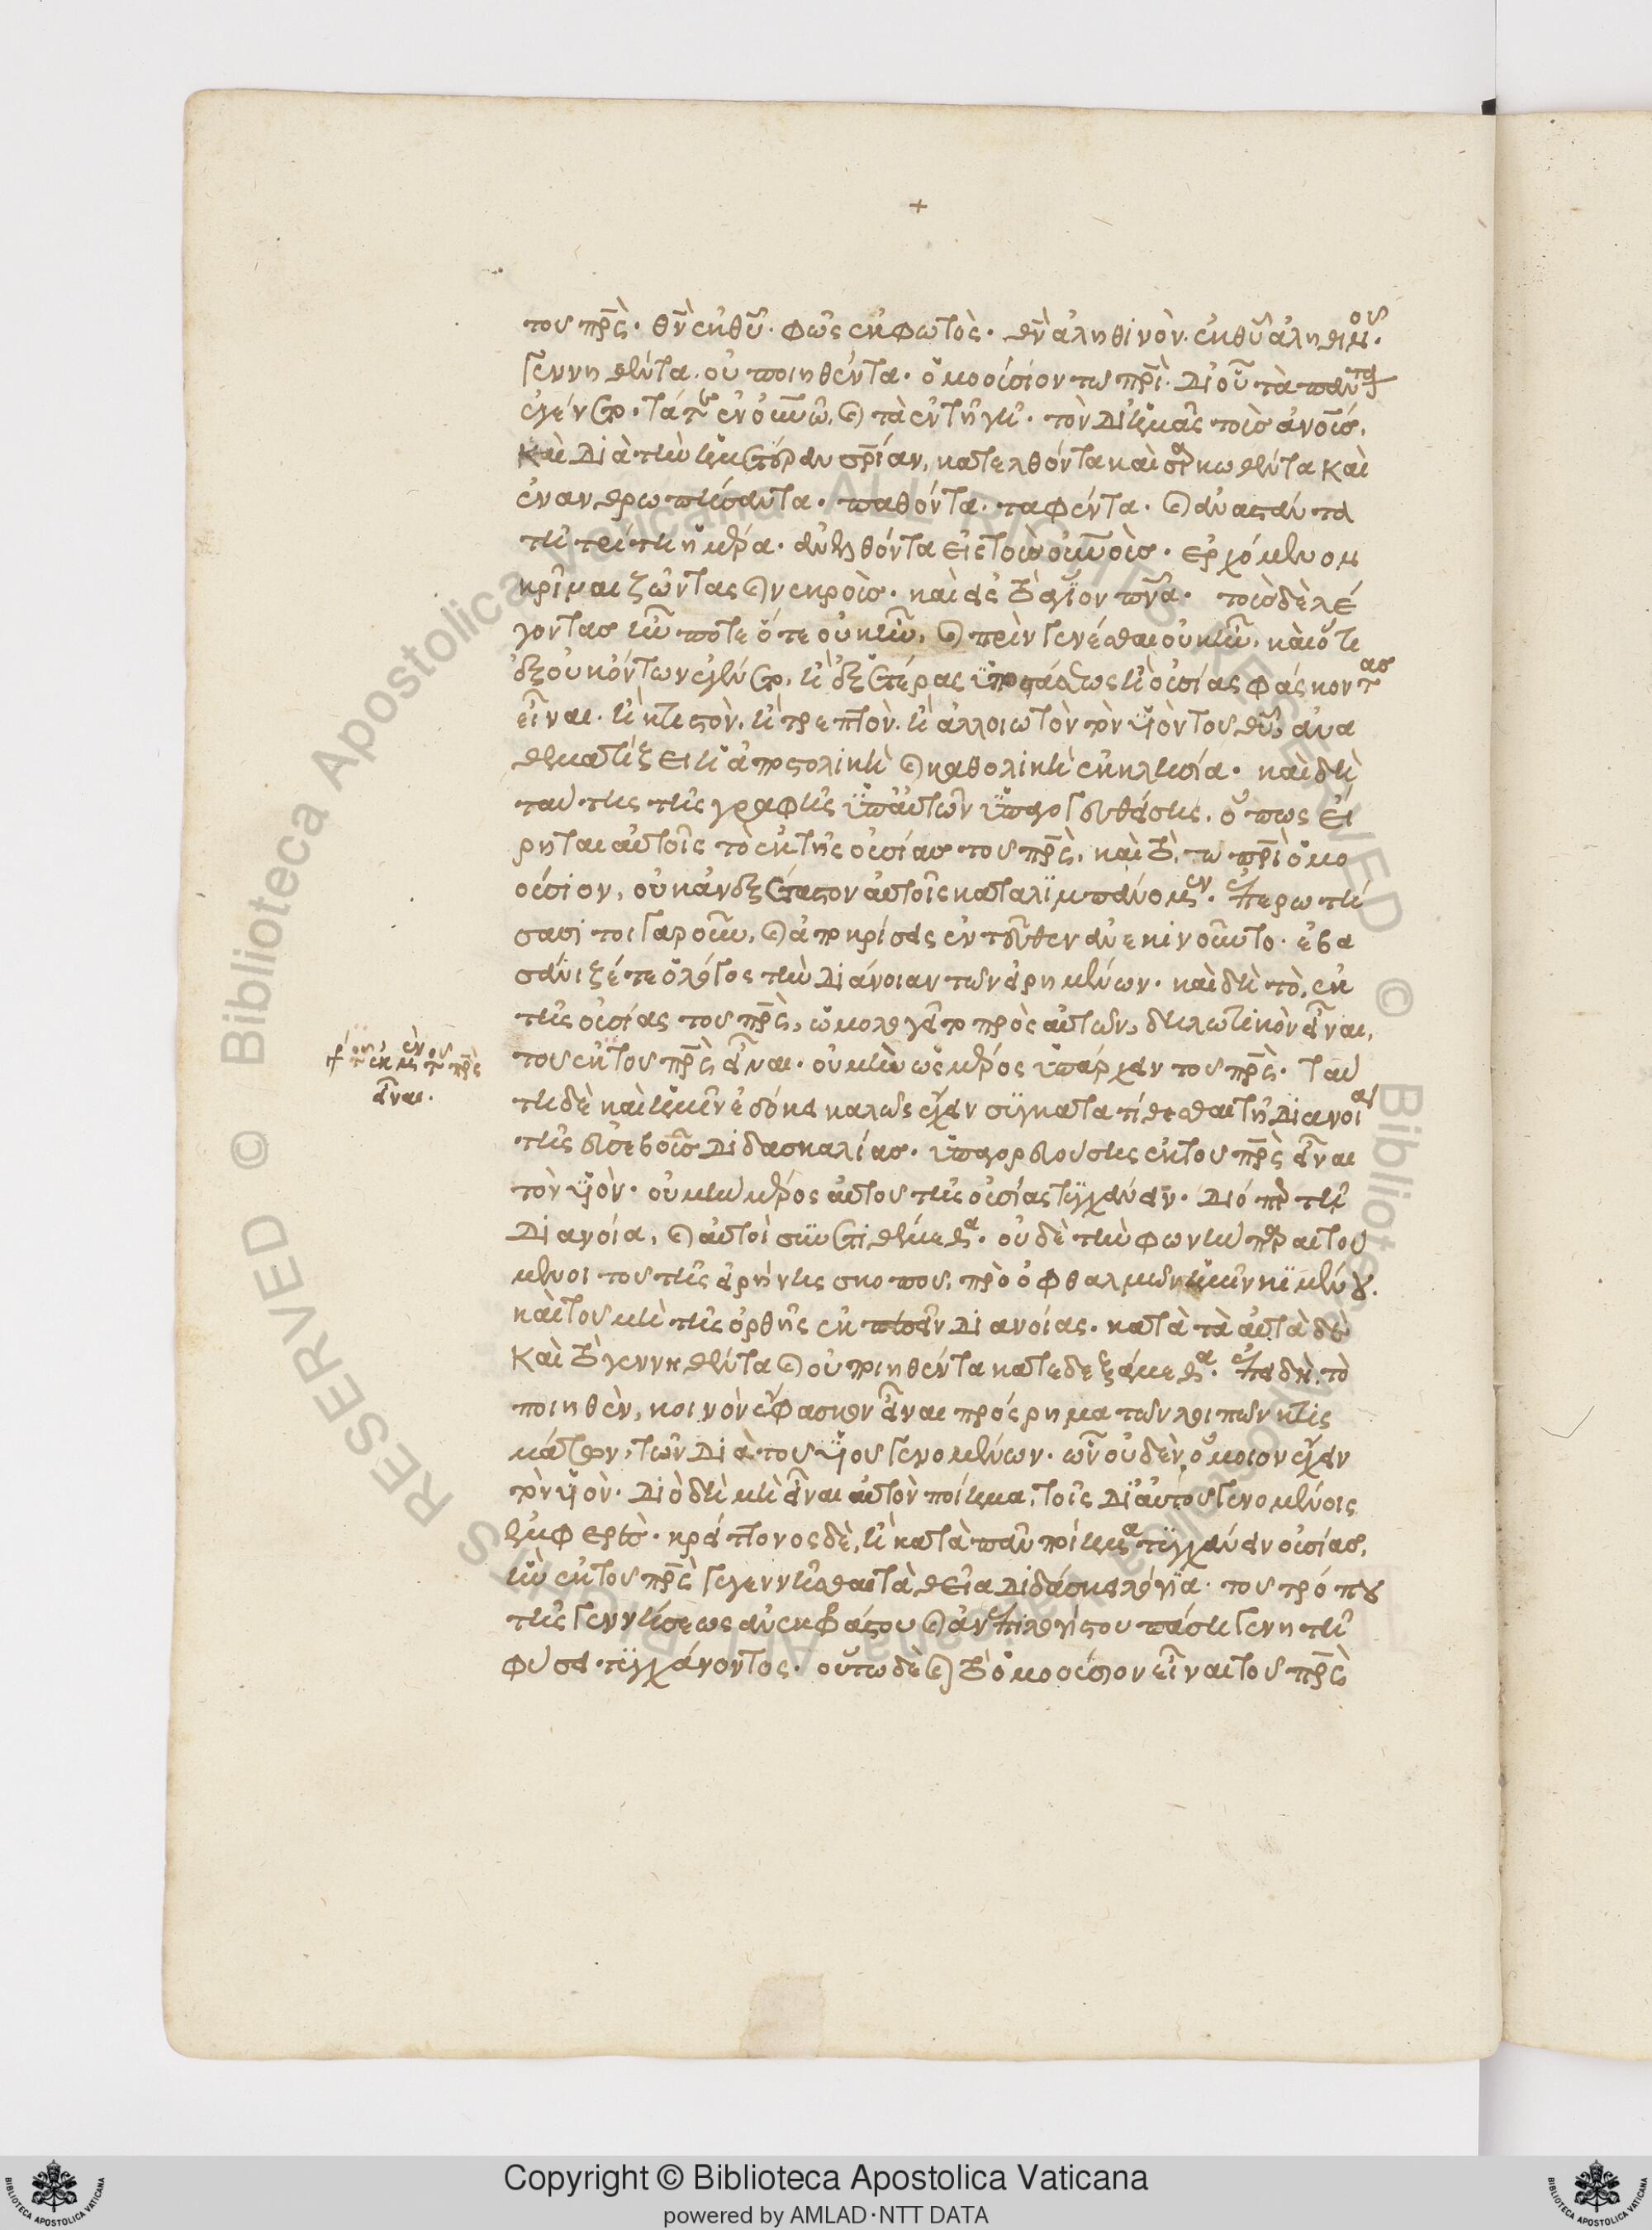 +
του πρ̅ς̀· θν̅ ἐκ θυ̅· φῶς ἐκ φωτὸς· θν̅ ἀληθινὸν· ἐκ θυ̅ ἀληθινοῦ·
γεννηθέντα· οὐ ποιηθέντα· ὁμοούσιον τῶ πρ̅ὶ· δι' οὗ τὰ πάντα
ἐγένετο· τά τε ἐν οὐν̅ῶ, καὶ τὰ ἐν τῆ γῆ· τὸν δι' ἡμᾶς τοὺσ ἀνο̅ύσ,
καὶ διὰ τὴν ἡμετέραν σρ̅ίαν, κατελθόντα καὶ σαρκωθέντα καὶ
ἐνανθρωπήσαντα· παθόντα· ταφέντα· καὶ ἀναστάντα
τῆ τρίτη ἡμέρα· ἀνελθόντα εἰς τοὺσ οὐν̅οὺσ· ἐρχόμενον
κρῖναι ζῶντας καὶ νεκροὺσ· καὶ εἰς τὸ ἅγϊον πνα̅· τοὺσ δὲ λέ
γοντασ ἦν ποτε ὅτε οὐκ ἦν, καὶ πρὶν γενέσθαι οὐκ ἦν, καὶ ὅτι
ἐξ οὐκ ὄντων ἐγένετο, ἢ ἐξ ἑτέρας ὑποστάσεως ἢ οὐσίας φάσκοντασ
εἶναι· ἢ κτιστὸν· ἢ τρεπτὸν· ἢ ἀλλοιωτὸν τὸν ϋἱὸν του θυ̅, ἀνα
θεματίζει ἡ ἀποστολικὴ καὶ καθολικὴ ἐκκλησία· καὶ δὴ
ταύτης τῆς γραφῆς ὑπ' αὐτῶν ὑπαγορευθείσης, ὅπως εἴ
ρηται αὐτοῖς τὸ ἐκ τῆς οὐσίασ του πρ̅ς̀, καὶ τὸ τῶ πρ̅ὶ ὁμο
ούσιον, οὐκ ἀνεξέταστον αὐτοῖς καταλϊμπάνομεν· ἐπερωτή
σασι τοιγαροῦν, καὶ ἀποκρίσεις ἐντεῦθεν ἀνεκινοῦντο· ἐβα
σάνιζέ τε ὁ λόγος τὴν διάνοιαν τῶν εἰρημένων· καὶ δὴ τὸ, ἐκ
τῆς οὐσίας του πρ̅ς̀, ὡμολόγειτο πρὸς αὐτῶν, δηλωτικὸν εἶναι,
του ἐκ του πρ̅ς̀ εἶναι· οὐ μὴν ὡς μέρος ὑπάρχειν του πρ̅ς̀· ταύ
τη δὲ καὶ ἡμῖν ἐδόκει καλῶς ἔχειν συγκατατίθεσθαι τῆ διανοία
τῆς εὐσεβοῦσ διδασκαλίασ· ὑπαγορευούσης ἐκ του πρ̅ς̀ εἶναι
τὸν ϋἱὸν· οὐ μὴν μέρος αὐτου τῆς οὐσίας τυγχάνειν· διόπερ τῆ
διανοία, καὶ αὐτοὶ συνετιθέμεθα· οὐδὲ τὴν φωνὴν παραιτού
μενοι του τῆς εἰρήνης σκοπου, πρὸ ὀφθαλμῶν ἡμῖν κϊμένου·
καὶ του μὴ τῆς ὀρθῆς ἐκπεσεῖν διανοίας· κατὰ τὰ αὐτὰ δὲ
καὶ τὸ γεννηθέντα καὶ οὐ ποιηθέντα κατεδεξάμεθα· ἐπειδὴ τὸ
ποιηθὲν, κοινὸν ἔφασκεν εἶναι πρόσρημα τῶν λοιπῶν κτισ
μάτων, τῶν διὰ του ϋἱου γενομένων· ὧν οὐδὲν ὅμοιον ἔχειν
τὸν ϋἱὸν· διὸ δὴ μὴ εἶναι αὐτὸν ποίημα, τοῖς δι' αὐτοῦ γενομένοις
ἐμφερὲς· κρείττονος δὲ, ἢ κατὰ πᾶν ποίημα τυγχάνειν οὐσίασ,
ἣν ἐκ του πρ̅ς̀ γεγεννῆσθαι τὰ θεῖα διδάσκει λόγϊα· του τρόπου
τῆς γεννήσεως ἀνεκφράστου καὶ ἀνεπιλογίστου πάση γενητῆ
φύσει τυγχάνοντος· οὕτω δὲ καὶ τὸ ὁμοούσιον εἶναι του πρ̅ς̀
Copyright © Biblioteca Apostolica Vaticana
powered by AMLAD·NTT DATA